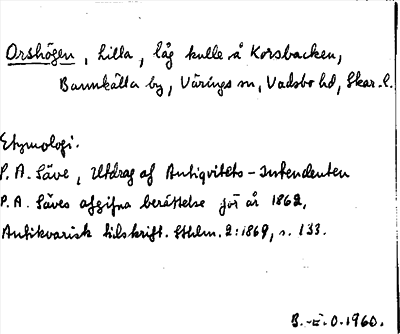 Orshögen, Lilla, låg kulle å Korsbacken,
Bannkälla by, Värings sn, Vadsbo hd, Skar. l.
Etymologi.
P. A. Säve, Utdrag af Antiqvitets-Intendenten
P. A. Säves afgifna berättelse för år 1862,
Antikvarisk tidskrift. Sthlm. 2:1869, s. 133.
B.-E. O. 1960.